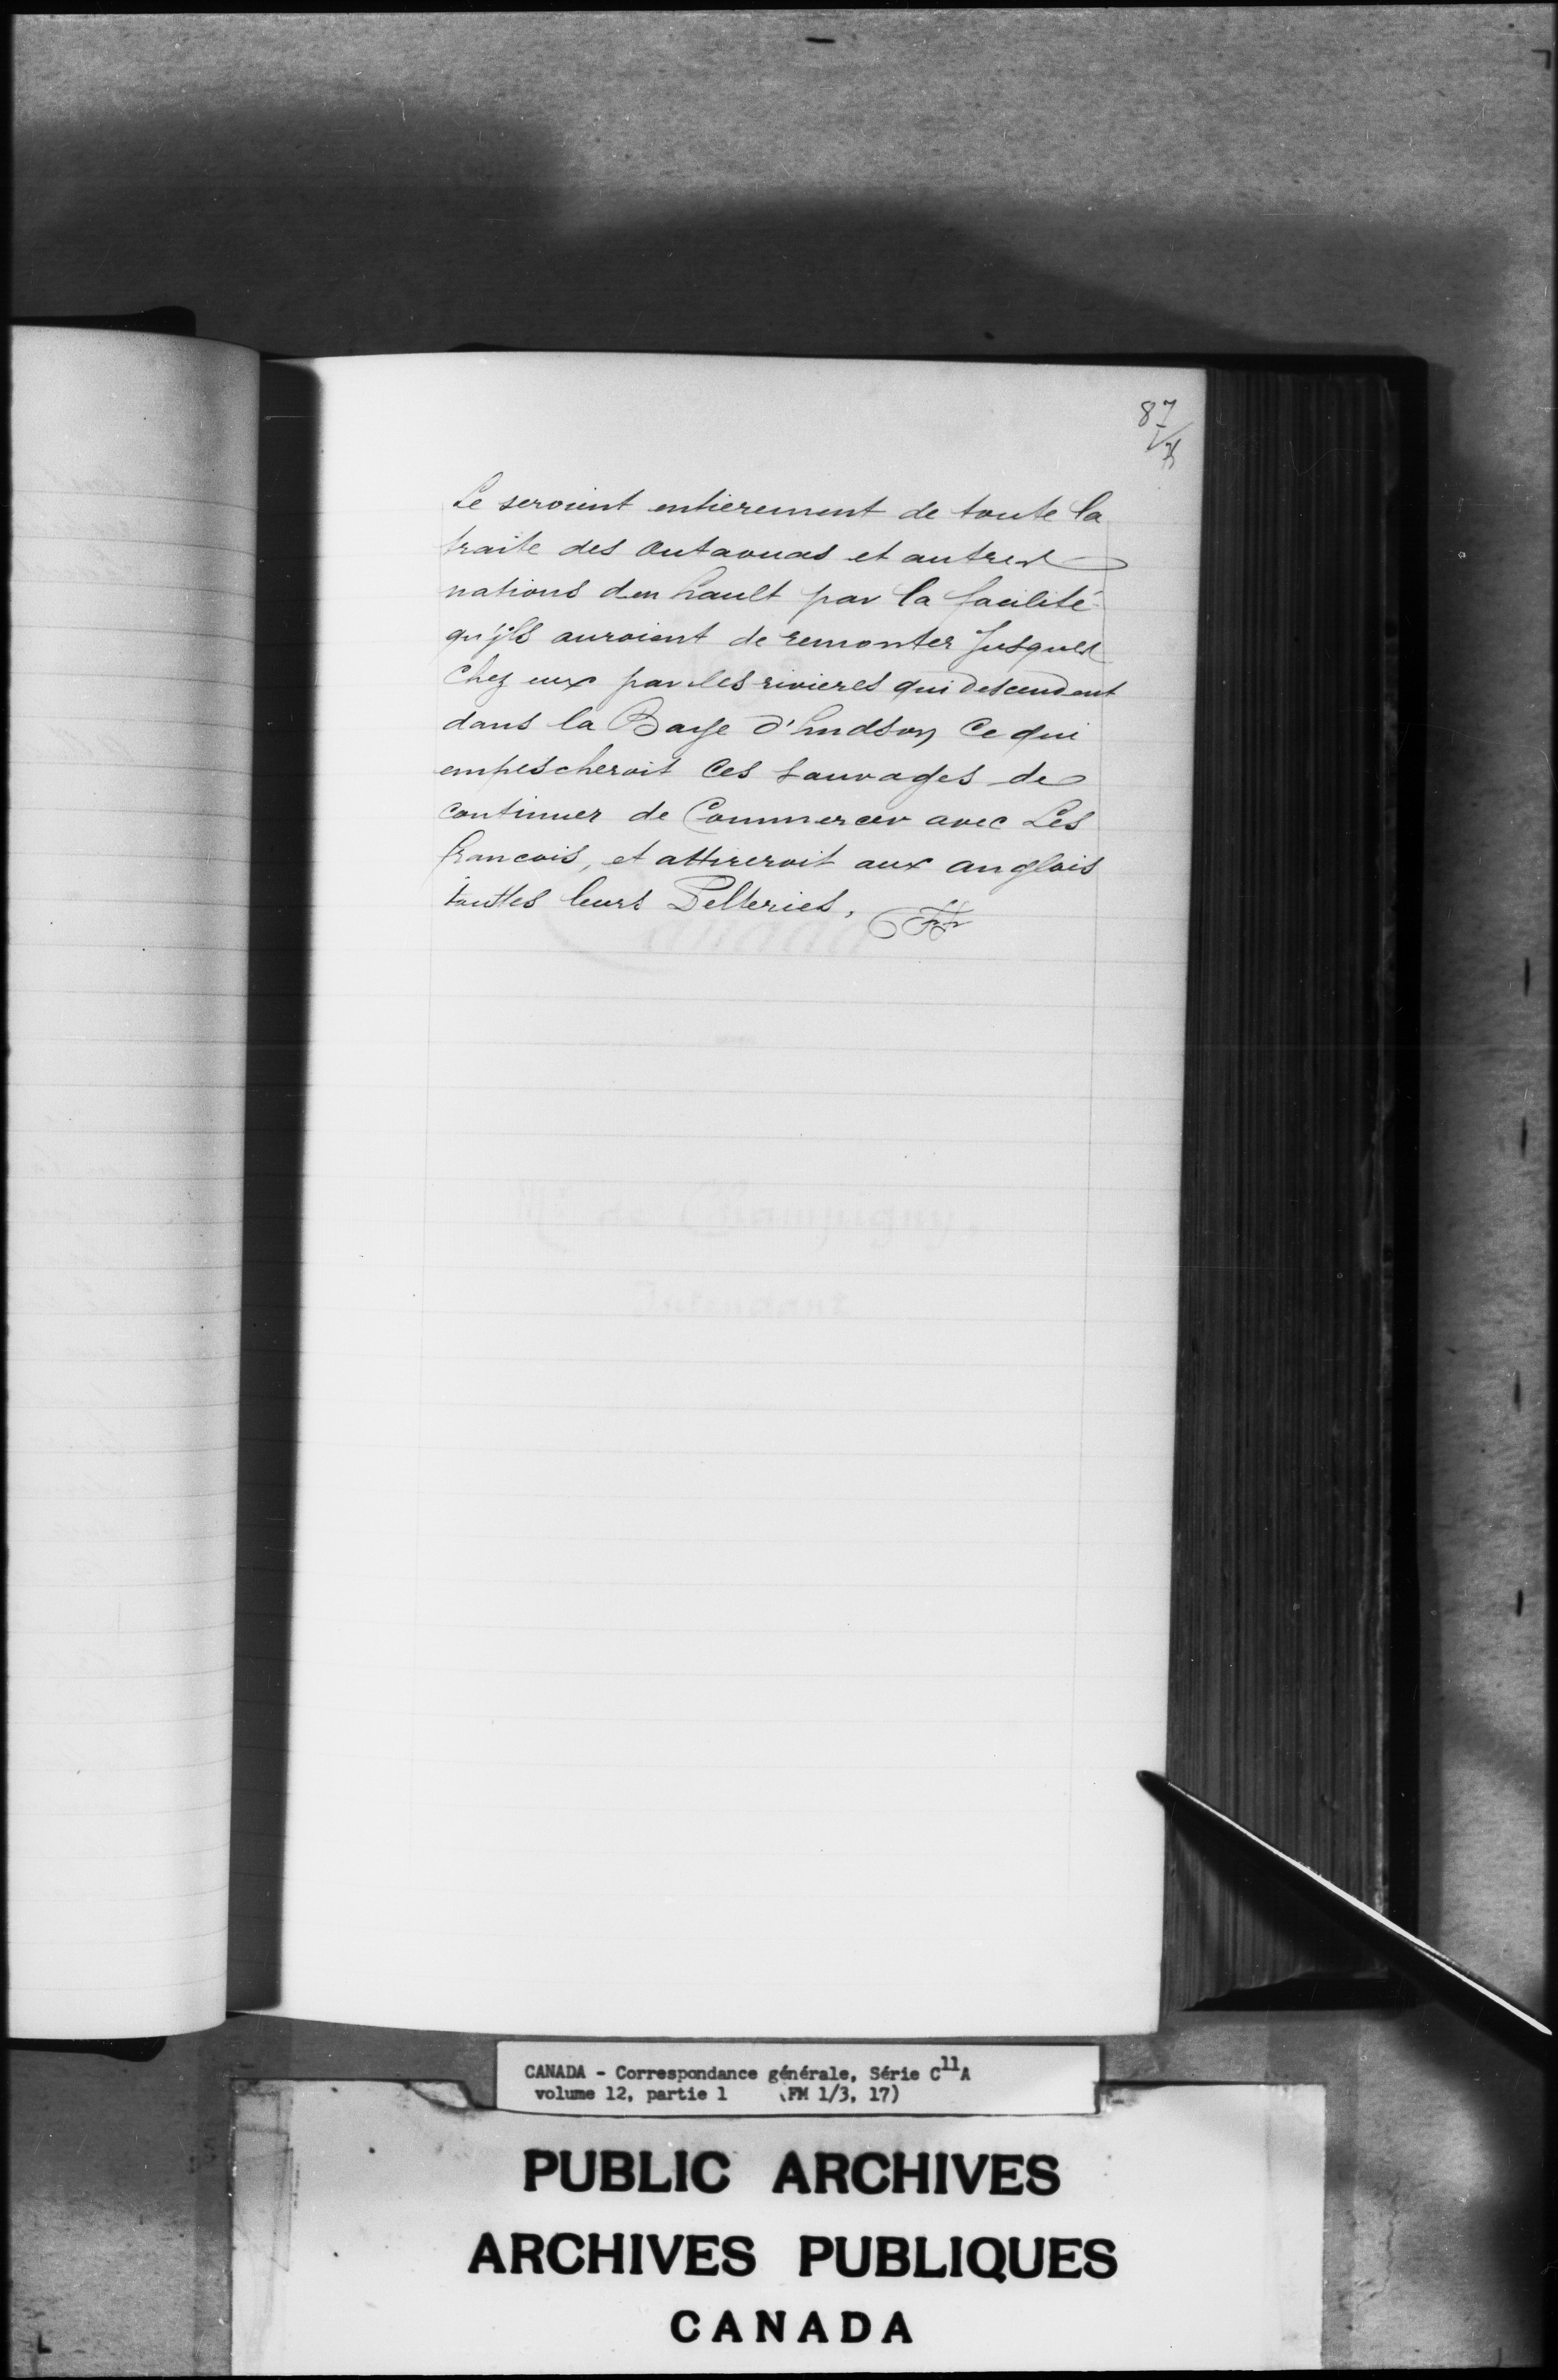 87
Le seroient entierement de toute la
traite des Outaouas et autres
nations den hault par la facilité
qu'jls auroient de remonter Jusques
Chez eux par les rivieres qui descendent
dans la Baye d'hudson Ce qui
empescheroit Ces Sauvages de
continuer de Commercer avec Les
francois, et attireroit aux anglois
touttes leurs Pelteries,
CANADA - Correspondance générale, Série C11A
volume 12, partie 1 (FM 1/3, 17)
PUBLIC ARCHIVES
ARCHIVES PUBLIQUES
CANADA